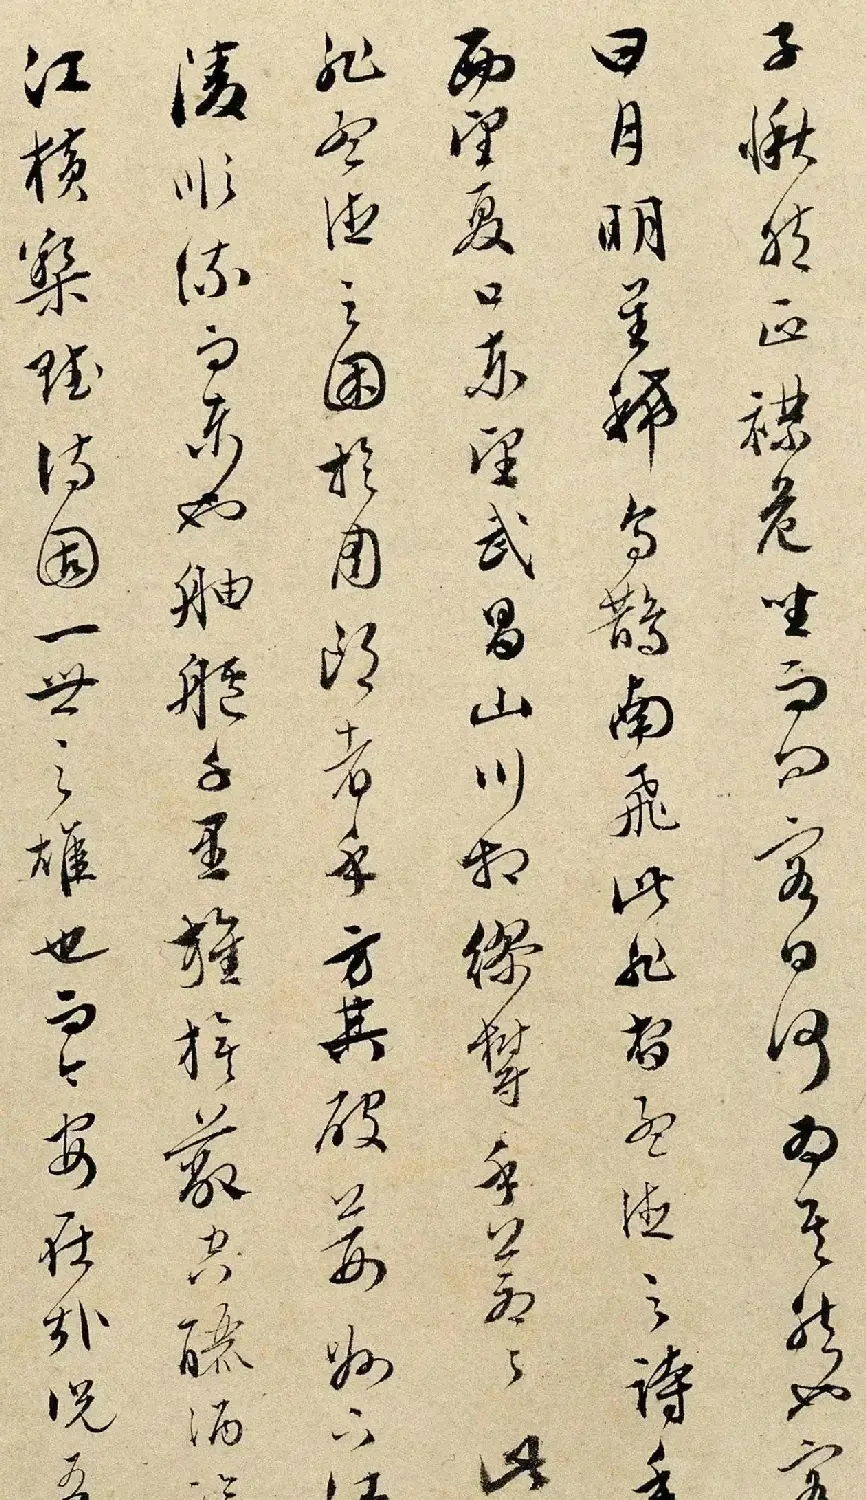 子愀然正襟危坐而問客曰何為其然也客
曰月明星稀烏鵲南飛此非曹孟德之詩乎
西望夏口東望武昌山川相繆鬱乎蒼〻此
非孟德之困於周郎者乎方其破荊州下
陵順流而東也舳艫千里旌旗蔽空釃酒臨
江橫槊賦詩固一世之雄也而今安在哉況吾